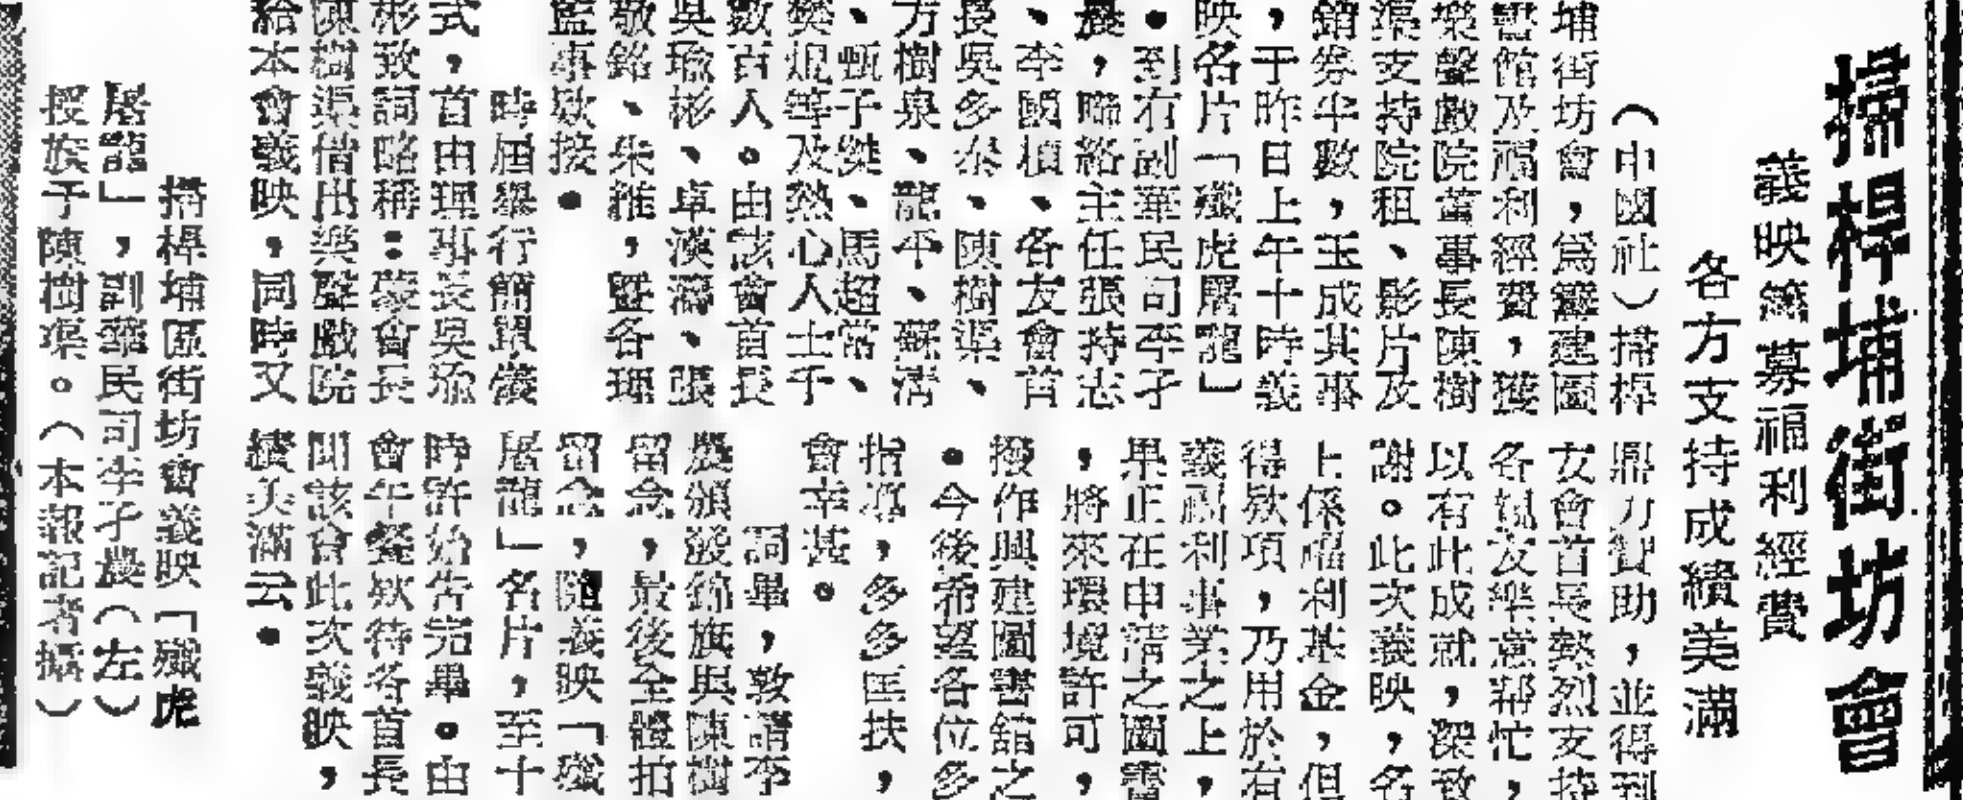 掃桿埔街坊會
義映籌募福利經費
各方支持成績美滿
（中國社）掃桿
埔街坊會，爲籌建圖
書館及福利經費，獲
樂聲戲院董事長陳樹
渠支持院租、影片及
銷券半數，玉成其事
，于昨日上午十時義
映名片「殲虎屠龍」
●到有副華民司李孑
農，聯絡主任張持志
、李國楨、各友會首
長吳多泰、陳樹渠、
方樹泉、龍平、蘇濟
、甄子傑、馬超常、
樊焜等及熱心人士千
數百人。由該會首長
吳瑜彬、卓漢濤、張
敬銘、朱維，暨各理
監事欵接●
時屆舉行簡單儀
式，首由理事長吳瑜
彬致詞略稱：蒙會長
陳樹渠借出樂聲戲院
給本會義映，同時又
鼎力贊助，並得到
友會首長熱烈支持
各親友樂意幫忙，
以有此成就，深致
謝。此次義映，名
上係福利基金，但
得欵項，乃用於有
義福利事業之上，
果正在申請之圖書
，將來環境許可，
撥作興建圖書館之
●今後希望各位多
指導，多多匡扶，
會幸甚。
詞畢，敦請李
農頒發錦旗與陳樹
留念，最後全體拍
留念，隨義映「殲
屠龍」名片，至十
時許始告完畢。由
會午餐欵待各首長
聞該會此次義映，
績美滿云●
掃桿埔區街坊會義映「殲虎
屠龍」，副華民司李孑農（左）
授旗予陳樹渠。（本報記者攝）